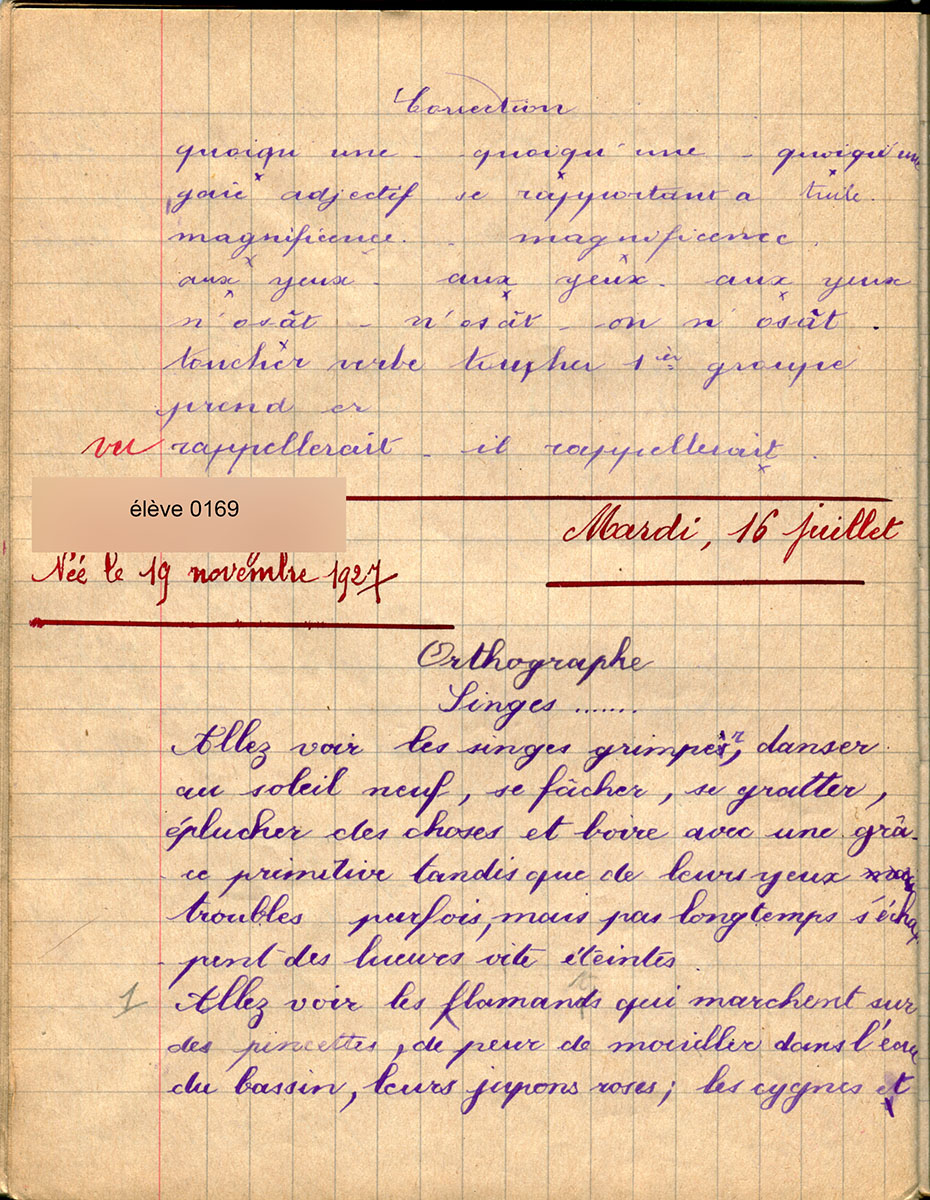 Correction
quoiqu'une - quoiqu'une - quoiqu'une
gaie adjectif se rapportant a truite.
magnificence. - magnificence.
aux yeux - aux yeux - aux yeux
n'osât - n'osât - on n'osât.
toucher verbe toucher 1er groupe
prend er
vu rappellerait - il rappellerait
élève 0169
Mardi, 16 juillet
Née le 19 novembre 1927
Orthographe
Singes .......
Allez voir les singes grimper, danser
au soleil neuf, se fâcher, se gratter,
éplucher des choses et boire avec une grâ-
ce primitive tandis que de leurs yeux
troubles parfois, mais pas longtemps s'échap
pent des lueurs vite éteintes.
1 Allez voir les flamants qui marchent sur
des pincettes, de peur de mouiller dans l'eau
du bassin, leurs jupons roses; les cygnes et